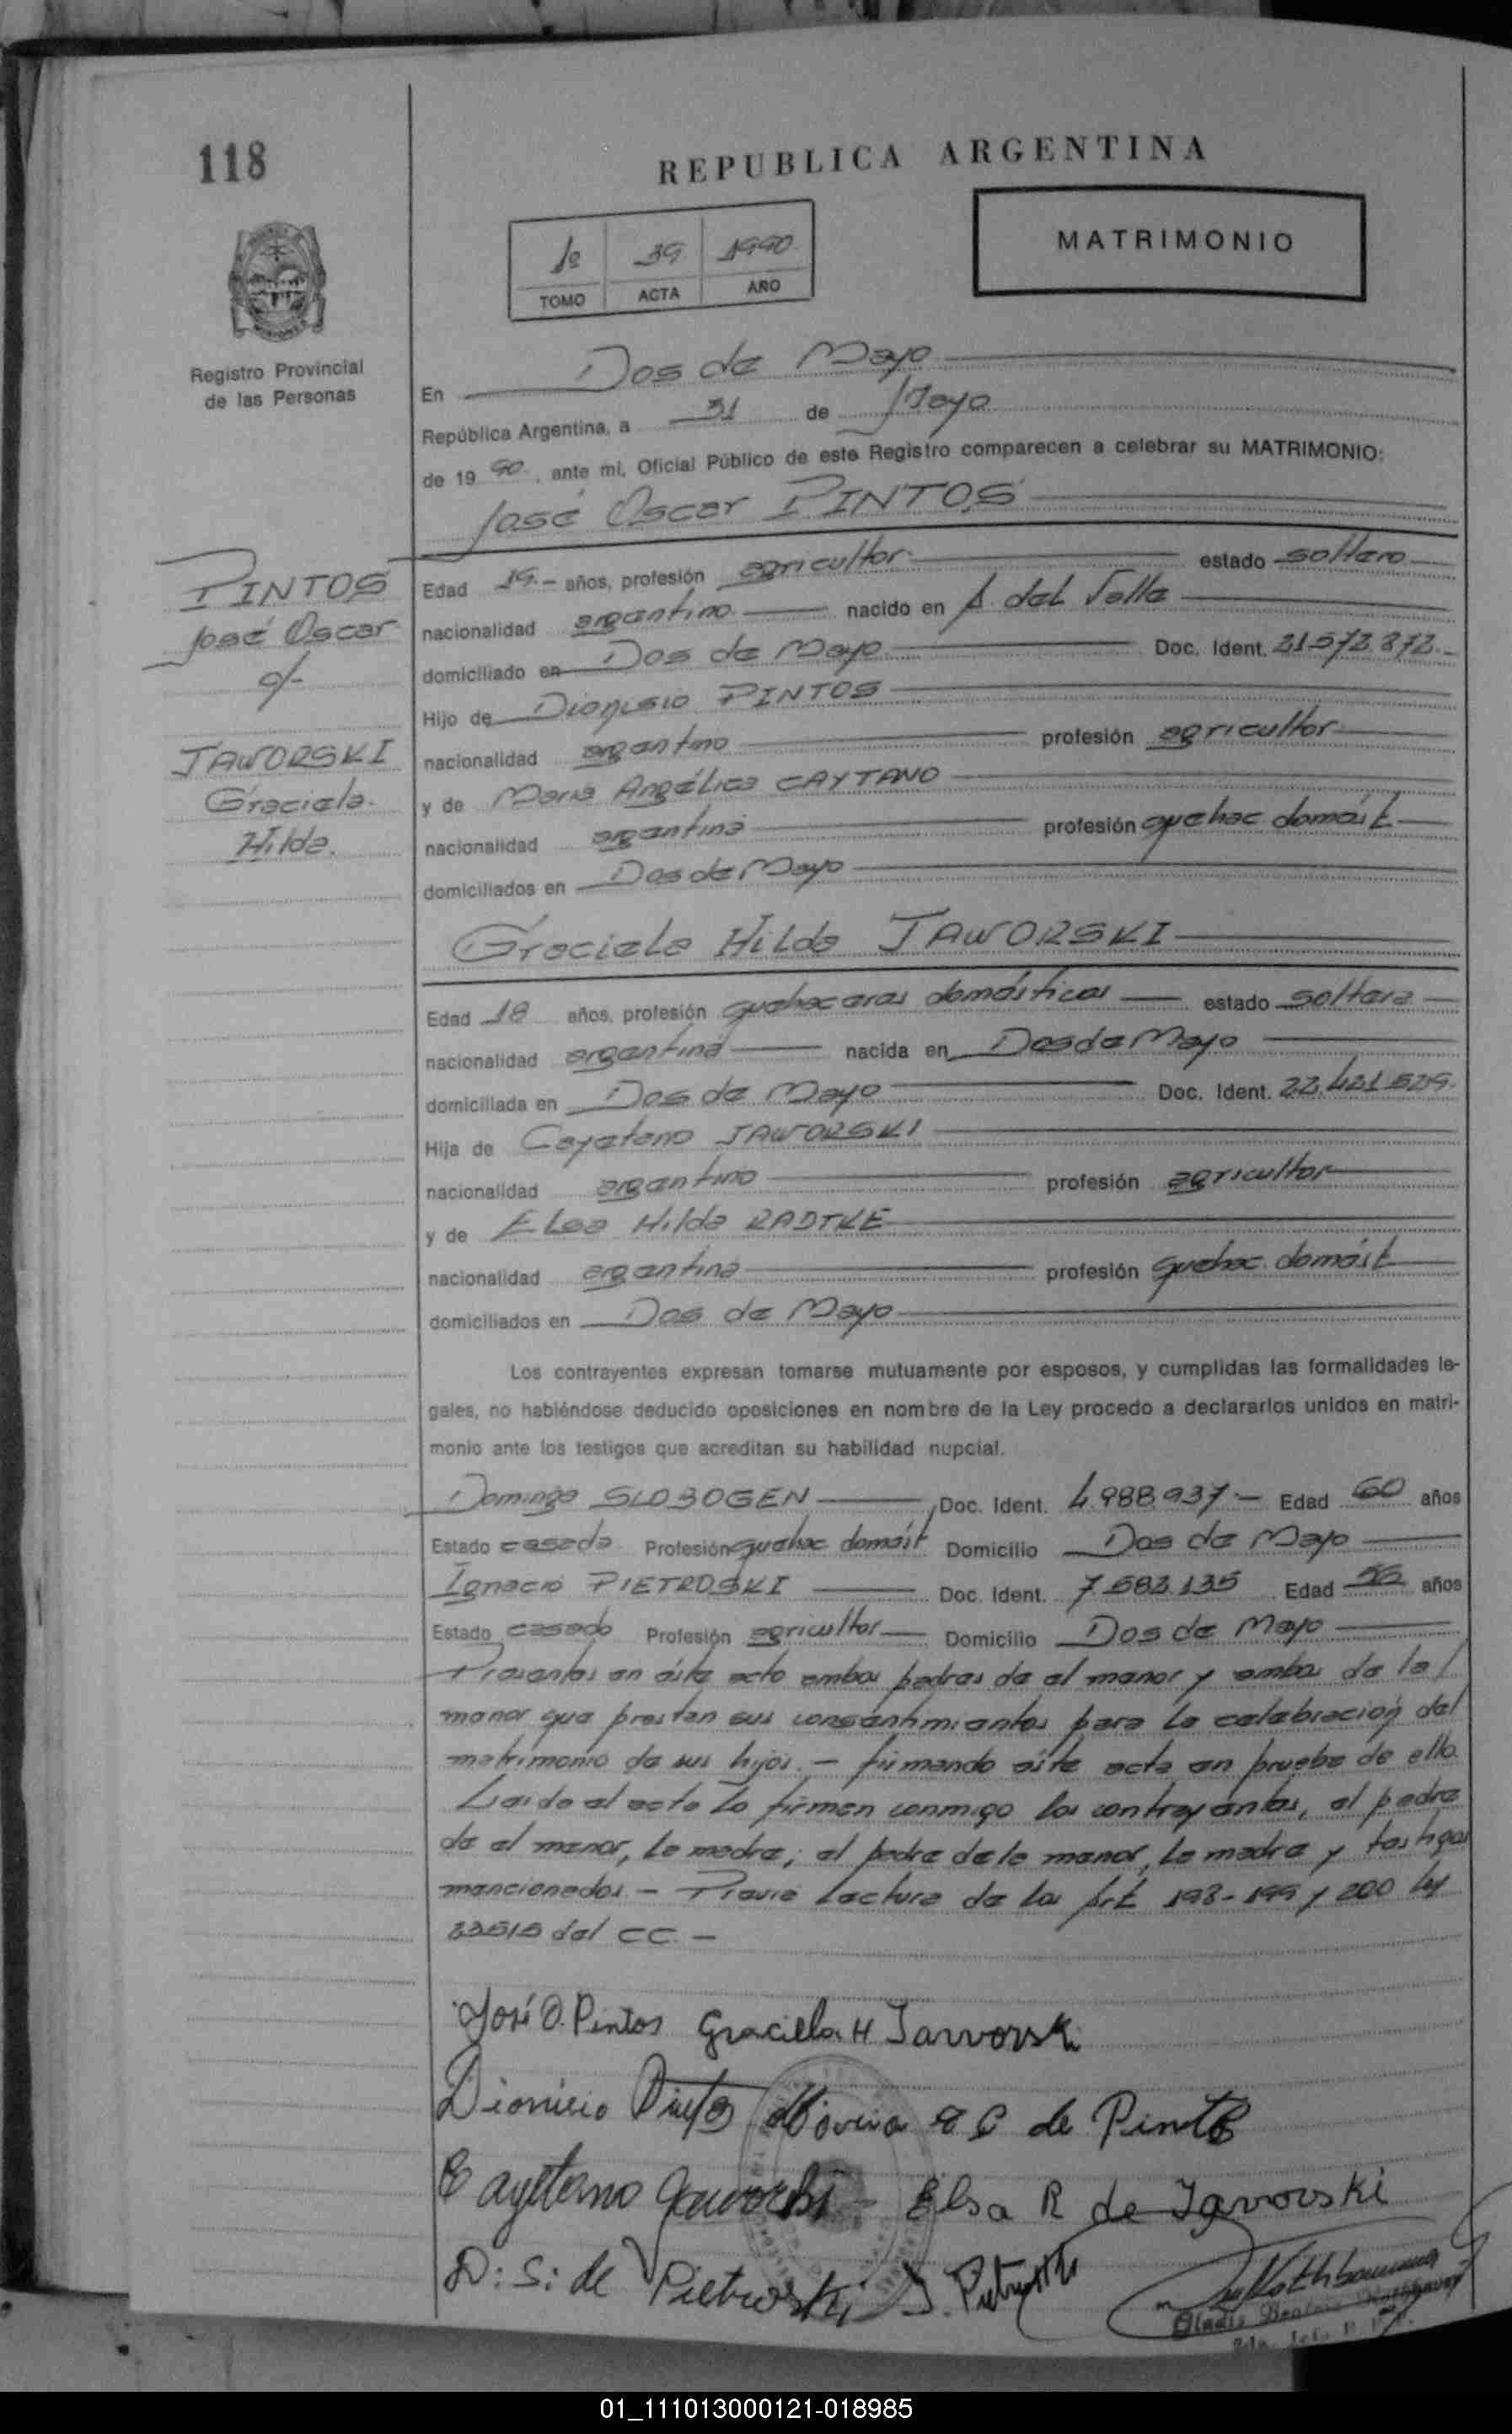 118
REPUBLICA ARGENTINA
1º 39 1990
TOMO ACTA AÑO
MATRIMONIO
Registro Provincial
de las Personas
En Dos de Mayo
República Argentina, a 31 de Mayo
de 19 90, ante mi, Oficial Público de este Registro comparecen a celebrar su MATRIMONIO:
José Oscar PINTOS
PINTOS
José Oscar
c/-
JAWORSKI
Graciela
Hilda.
Edad 19.- años, profesión agricultor estado soltero
nacionalidad argentino nacido en A. del Valle
domiciliado en Dos de Mayo Doc. Ident. 21.572.872.-
Hijo de Dionisio PINTOS
nacionalidad argentino profesión agricultor
y de María Angélica CAYTANO
nacionalidad argentina profesión quehac. domést.
domiciliados en Dos de Mayo
Graciela Hilda JAWORSKI
Edad 18 años, profesión quehaceres domésticos estado soltera
nacionalidad argentina nacida en Dos de Mayo
domiciliada en Dos de Mayo Doc. Ident. 22.421.529.
Hija de Cayetano JAWORSKI
nacionalidad argentino profesión agricultor
y de Elsa Hilda RADTKE
nacionalidad argentina profesión quehac. domést
domiciliados en Dos de Mayo
Los contrayentes expresan tomarse mutuamente por esposos, y cumplidas las formalidades le-
gales, no habiéndose deducido oposiciones en nombre de la Ley procedo a declararlos unidos en matri-
monio ante los testigos que acreditan su habilidad nupcial.
Dominga SLOBOGEN Doc. Ident. 4.988.937.- Edad 60 años
Estado casada Profesión quehac. domést Domicilio Dos de Mayo
Ignacio PIETROSKI Doc. Ident. 7.582.135 Edad años
Estado casado Profesión agricultor Domicilio Dos de Mayo
Presentes en éste acto ambos padres de el menor y ambos de la
menor que prestan sus consentimientos para la celebración del
matrimonio de sus hijos.- firmando éste acta en prueba de ello.
Leído el acto lo firman conmigo los contrayentes, el padre
de el menor, la madre; el padre de la menor, la madre y testigos
mencionados - Previa lectura de los Art. 198-199 y 200 ley
23515 del CC. -
José O. Pintos Graciela H Jaworski
Dionicio Pintos de Pintos
Cayetano Jaworski - Elsa R de Jaworski
D: S: de Pietroski I. Pietroski
Gladis Beatriz
01_111013000121-018985